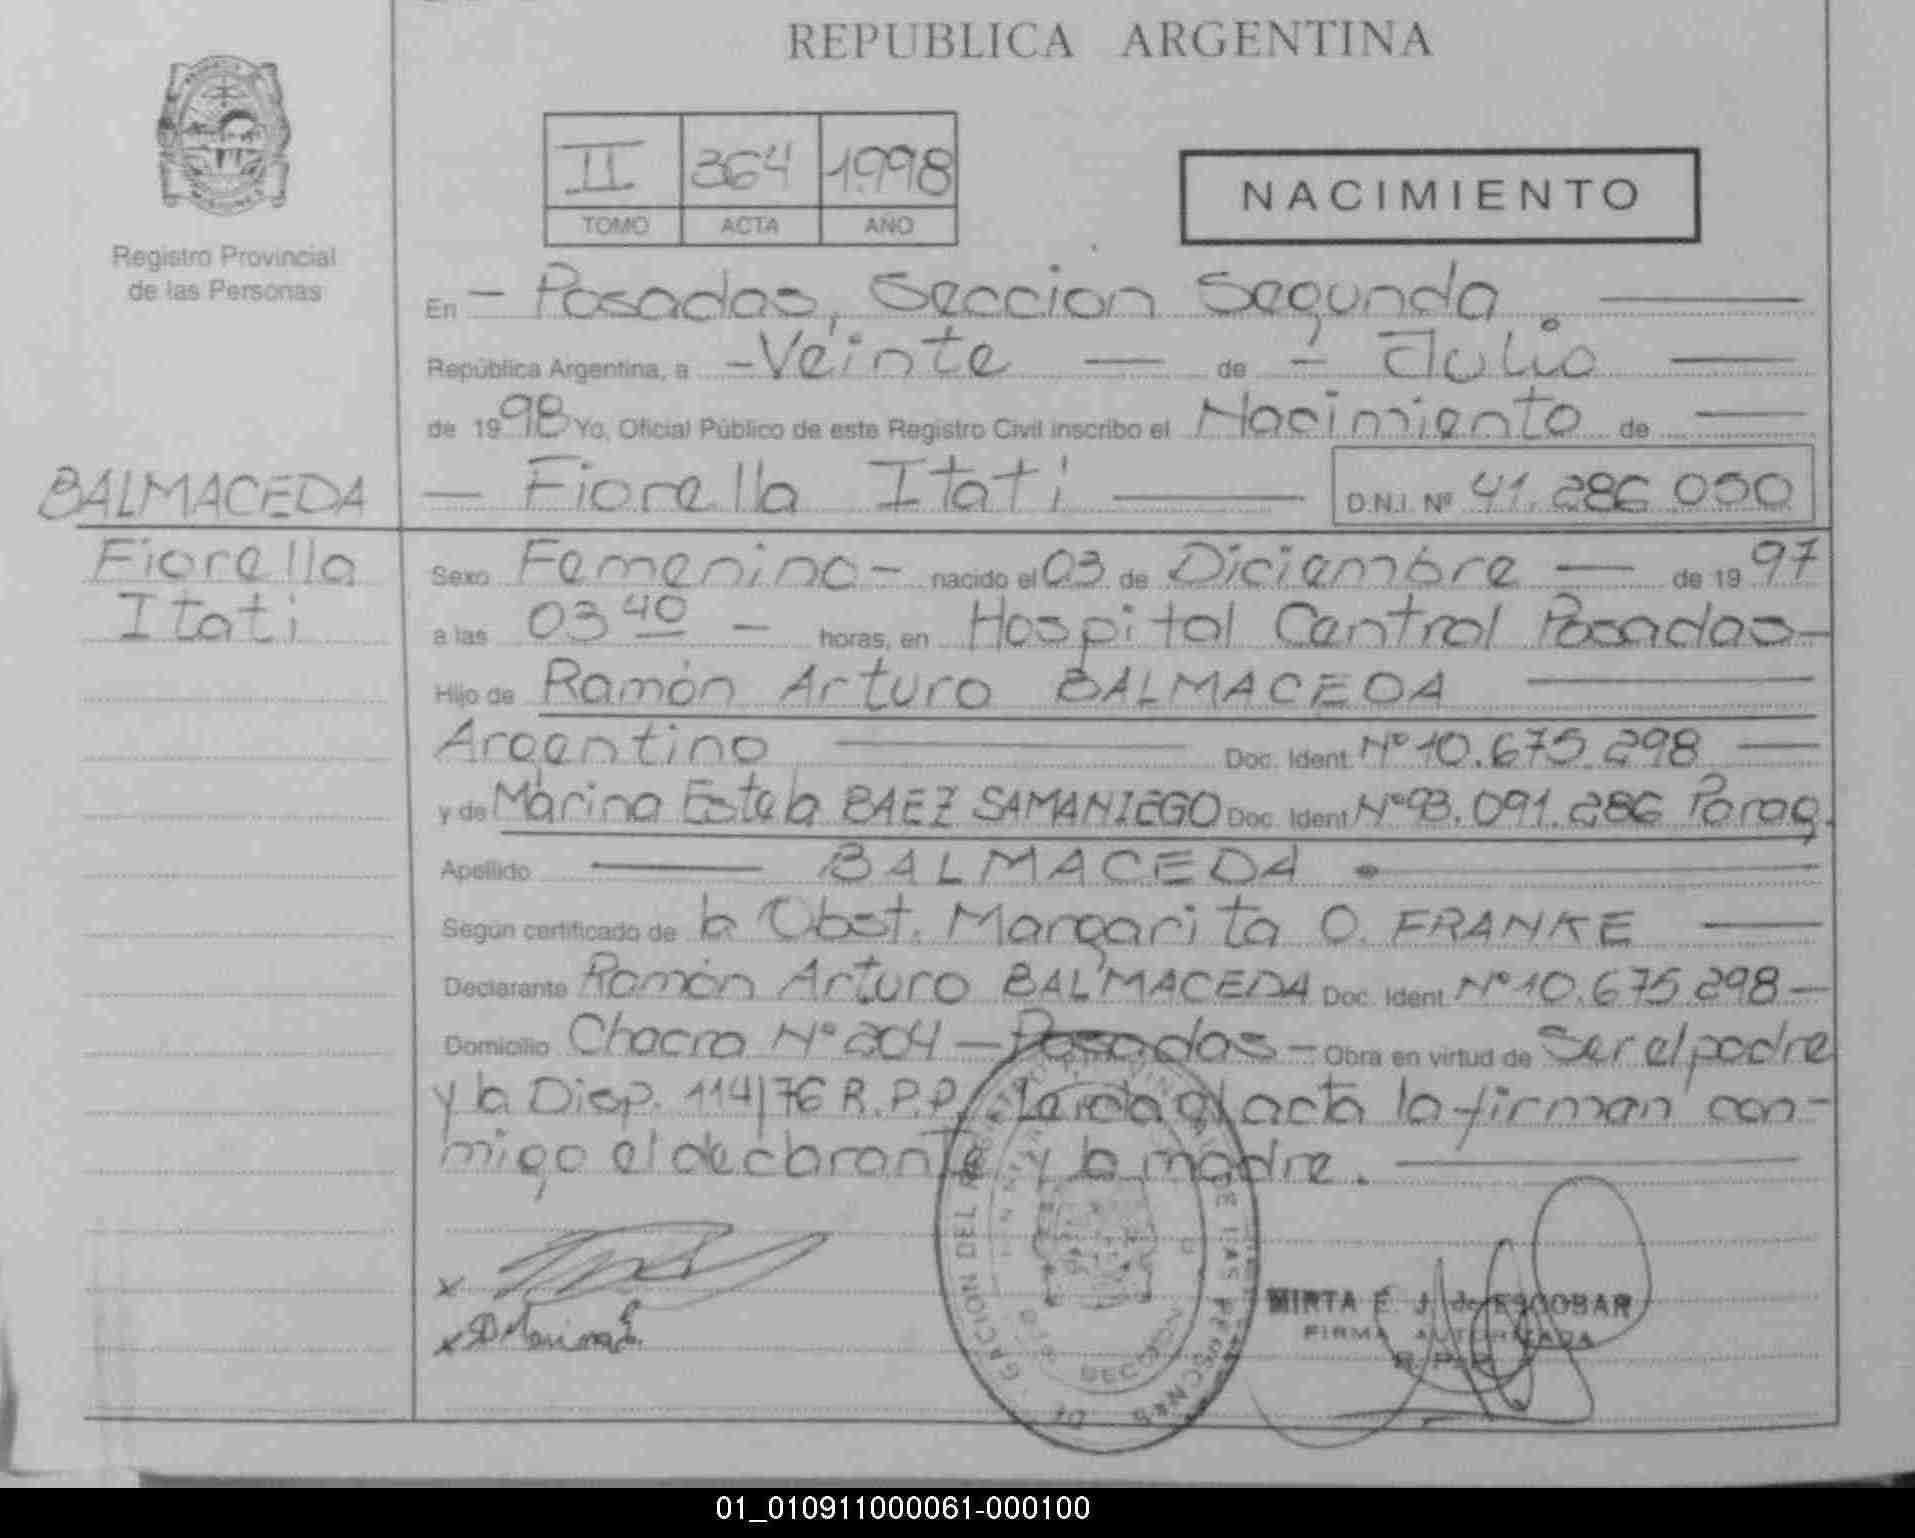 REPUBLICA ARGENTINA
II 364 1998
TOMO ACTA AÑO
NACIMIENTO
Registro Provincial
de las Personas
En - Posadas, Seccion Segunda
República Argentina, a - Veinte — de - Julio —
de 1998 Yo, Oficial Público de este Registro Civil inscribo el Nacimiento de —
BALMACEDA
Fiorella
Itati
— Fiorella Itati — D.N.I. Nº 41.286.050
Sexo Femenino - nacido el 03 de Diciembre — de 1997
a las 03 40 - horas, en Hospital Central Posadas -
Hijo de Ramón Arturo BALMACEDA —
Argentino — Doc. Ident. Nº 10.675.298 —
y de Marina Estela BAEZ SAMANIEGO Doc. Ident Nº 93.091.286 Parag.
Apellido — BALMACEDA —
Según certificado de la Obst. Margarita O. FRANKE —
Declarante Ramón Arturo BALMACEDA Doc. Ident. Nº 10.675.298 —
Domicilio Chacra Nº 204 - Posadas - Obra en virtud de Ser el padre
y la Disp. 114/76 R.P.P. Leida el acta la firman con-
migo el declarante y la madre. —
x
x Marina E.
MIRTA E. J. de ESCOBAR
FIRMA AUTORIZADA
R. P. P.
01_010911000061-000100